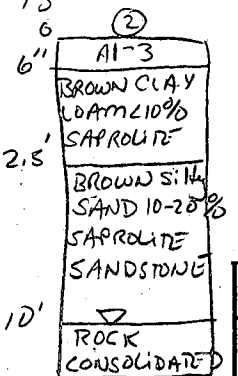 0
②
A1-3
6"
BROWN CLAY
LOAM <10%
SAPROLITE
2.5'
BROWN Silty
SAND 10-20%
SAPROLITE
SANDSTONE
10'
ROCK
CONSOLIDATED